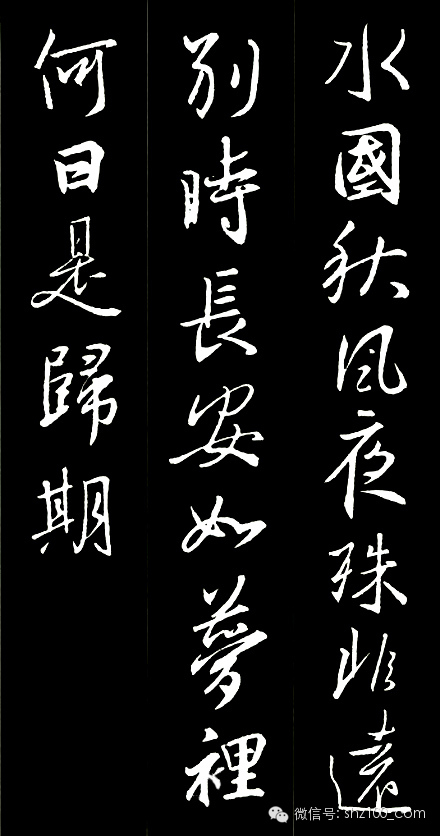 水國秋風夜殊非遠
別時長安如夢裡
何日是歸期
微信号: shz100_com